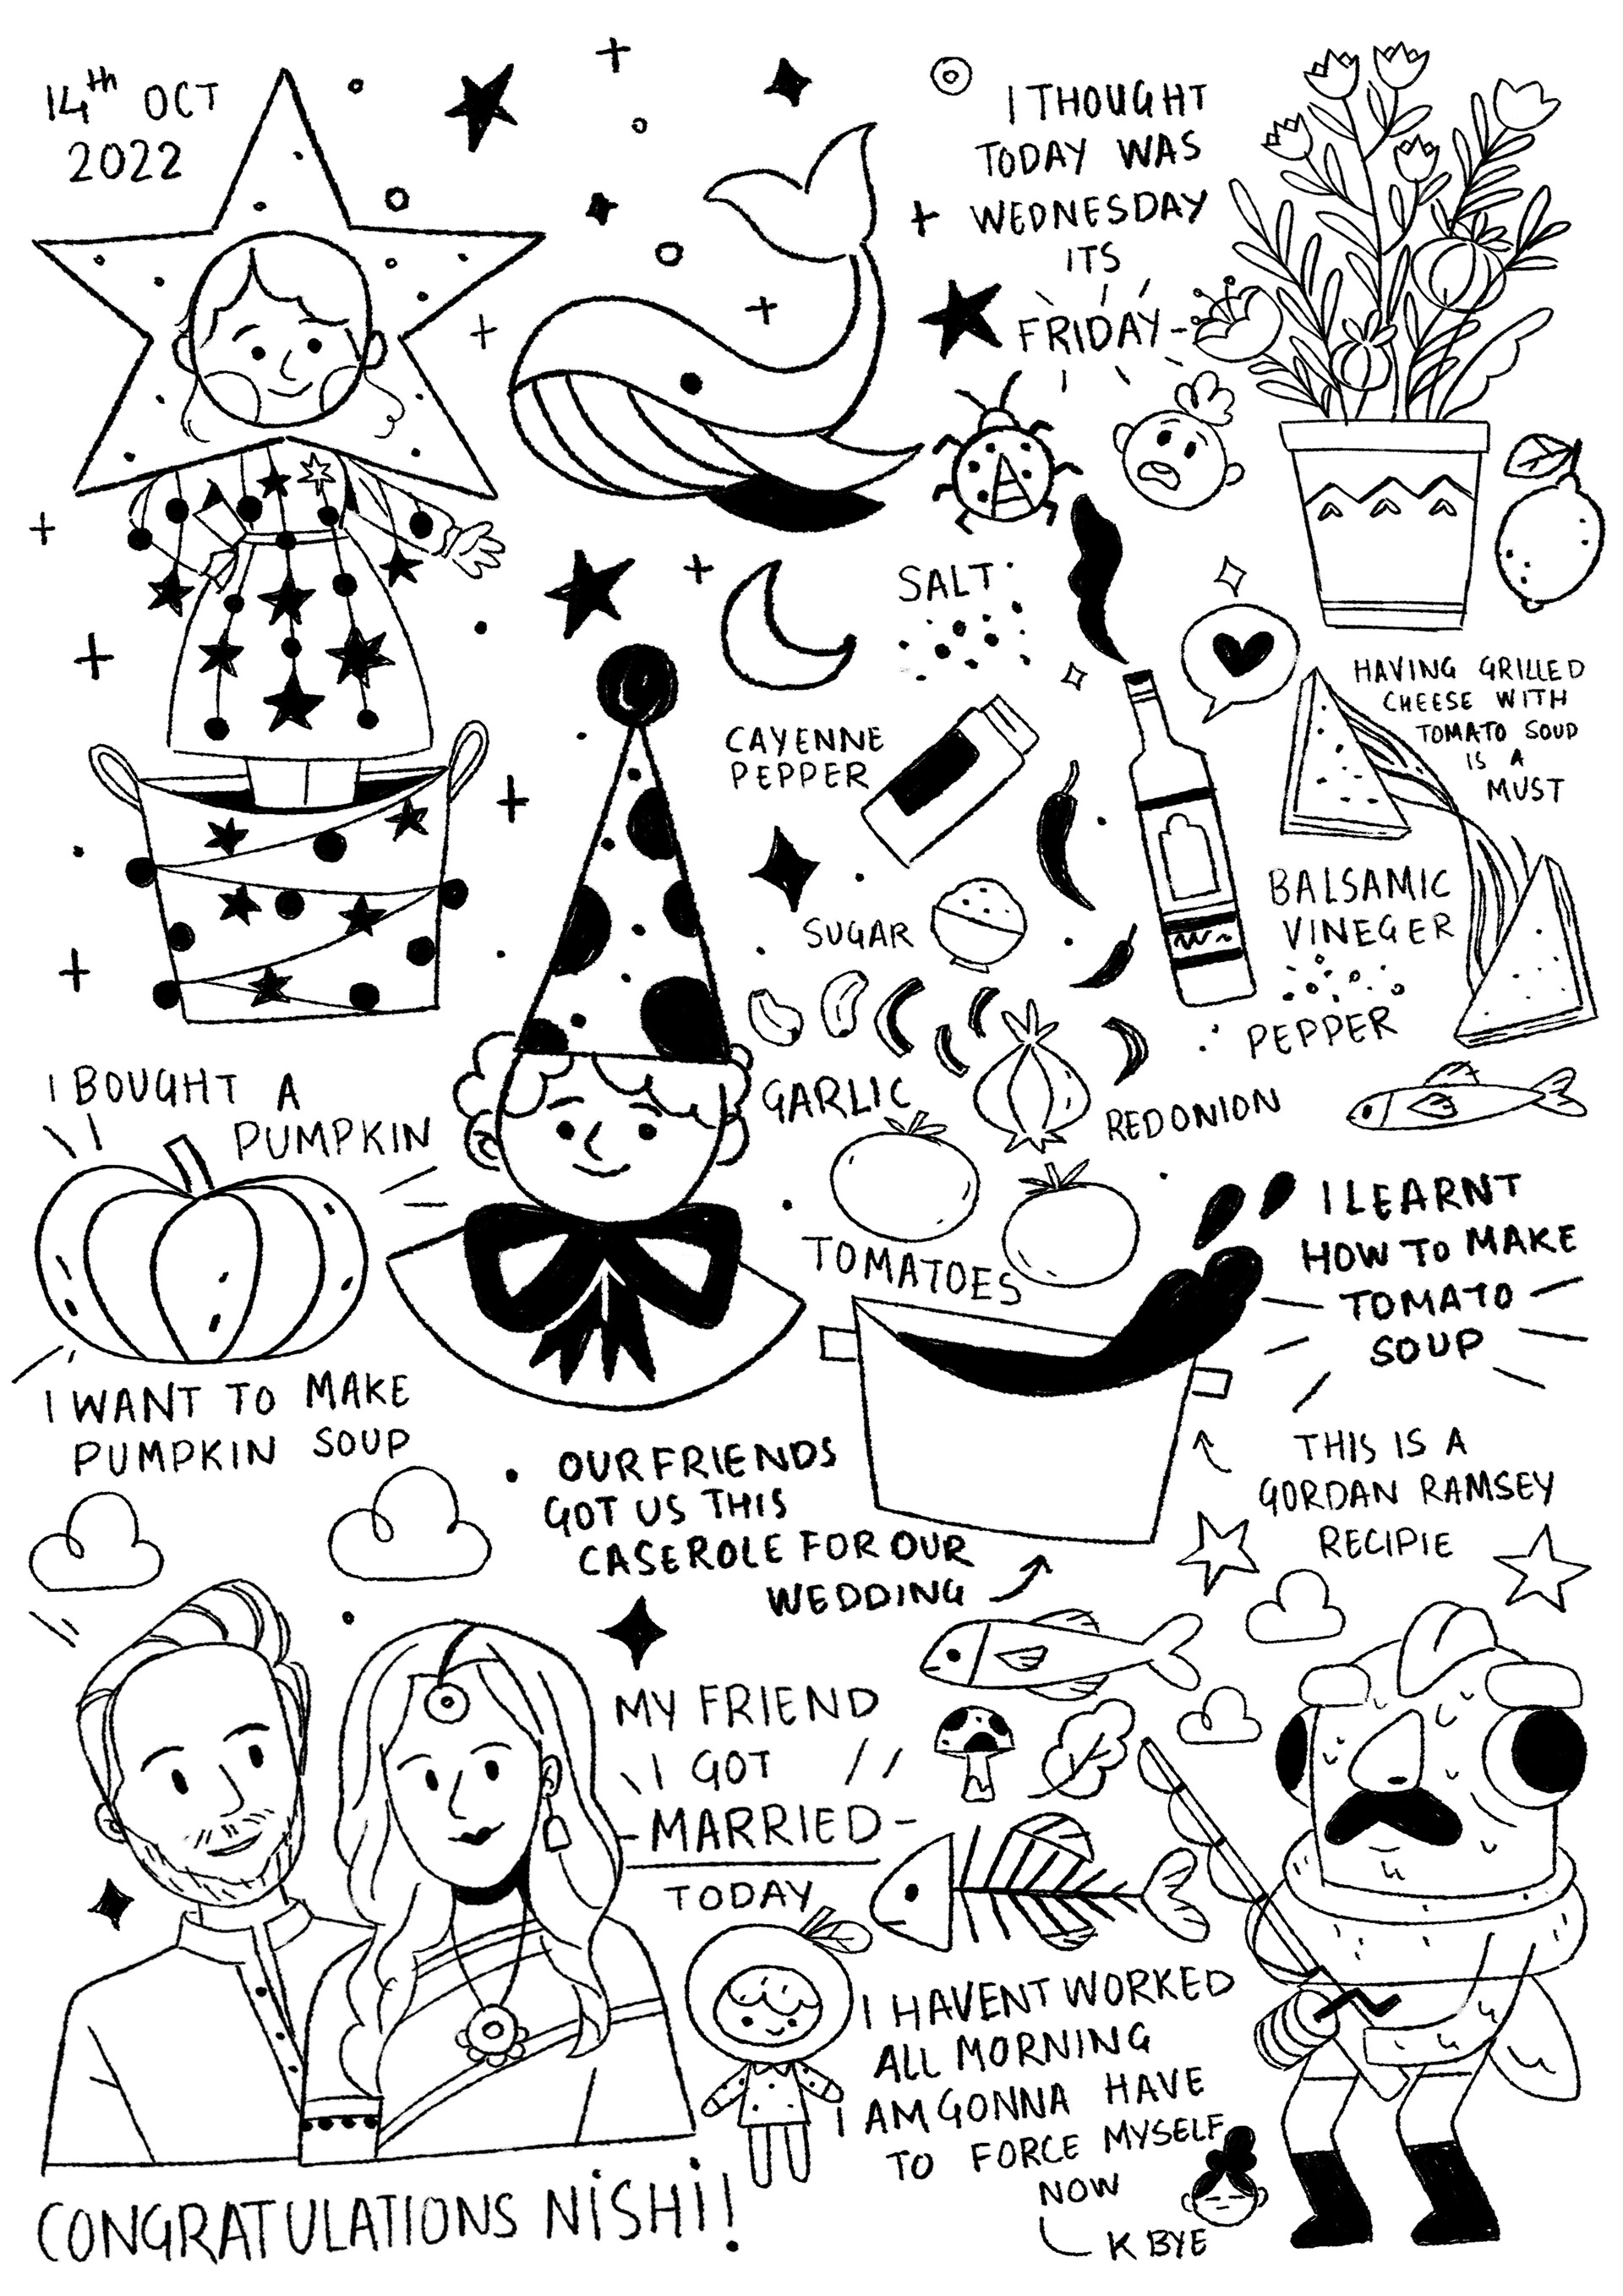 14th OCT
2022
I THOUGHT
TODAY WAS
WEDNESDAY
ITS
FRIDAY
SALT
CAYENNE
PEPPER
SUGAR
GARLIC
RED ONION
TOMATOES
BALSAMIC
VINEGER
PEPPER
HAVING GRILLED
CHEESE WITH
TOMATO SOUP
IS A
MUST
I BOUGHT A
PUMPKIN
I WANT TO MAKE
PUMPKIN SOUP
I LEARNT
HOW TO MAKE
TOMATO
SOUP
THIS IS A
GORDAN RAMSEY
RECIPIE
OUR FRIENDS
GOT US THIS
CASEROLE FOR OUR
WEDDING
MY FRIEND
I GOT
MARRIED
TODAY
CONGRATULATIONS NiSHi!
I HAVENT WORKED
ALL MORNING
I AM GONNA HAVE
TO FORCE MYSELF
NOW
K BYE